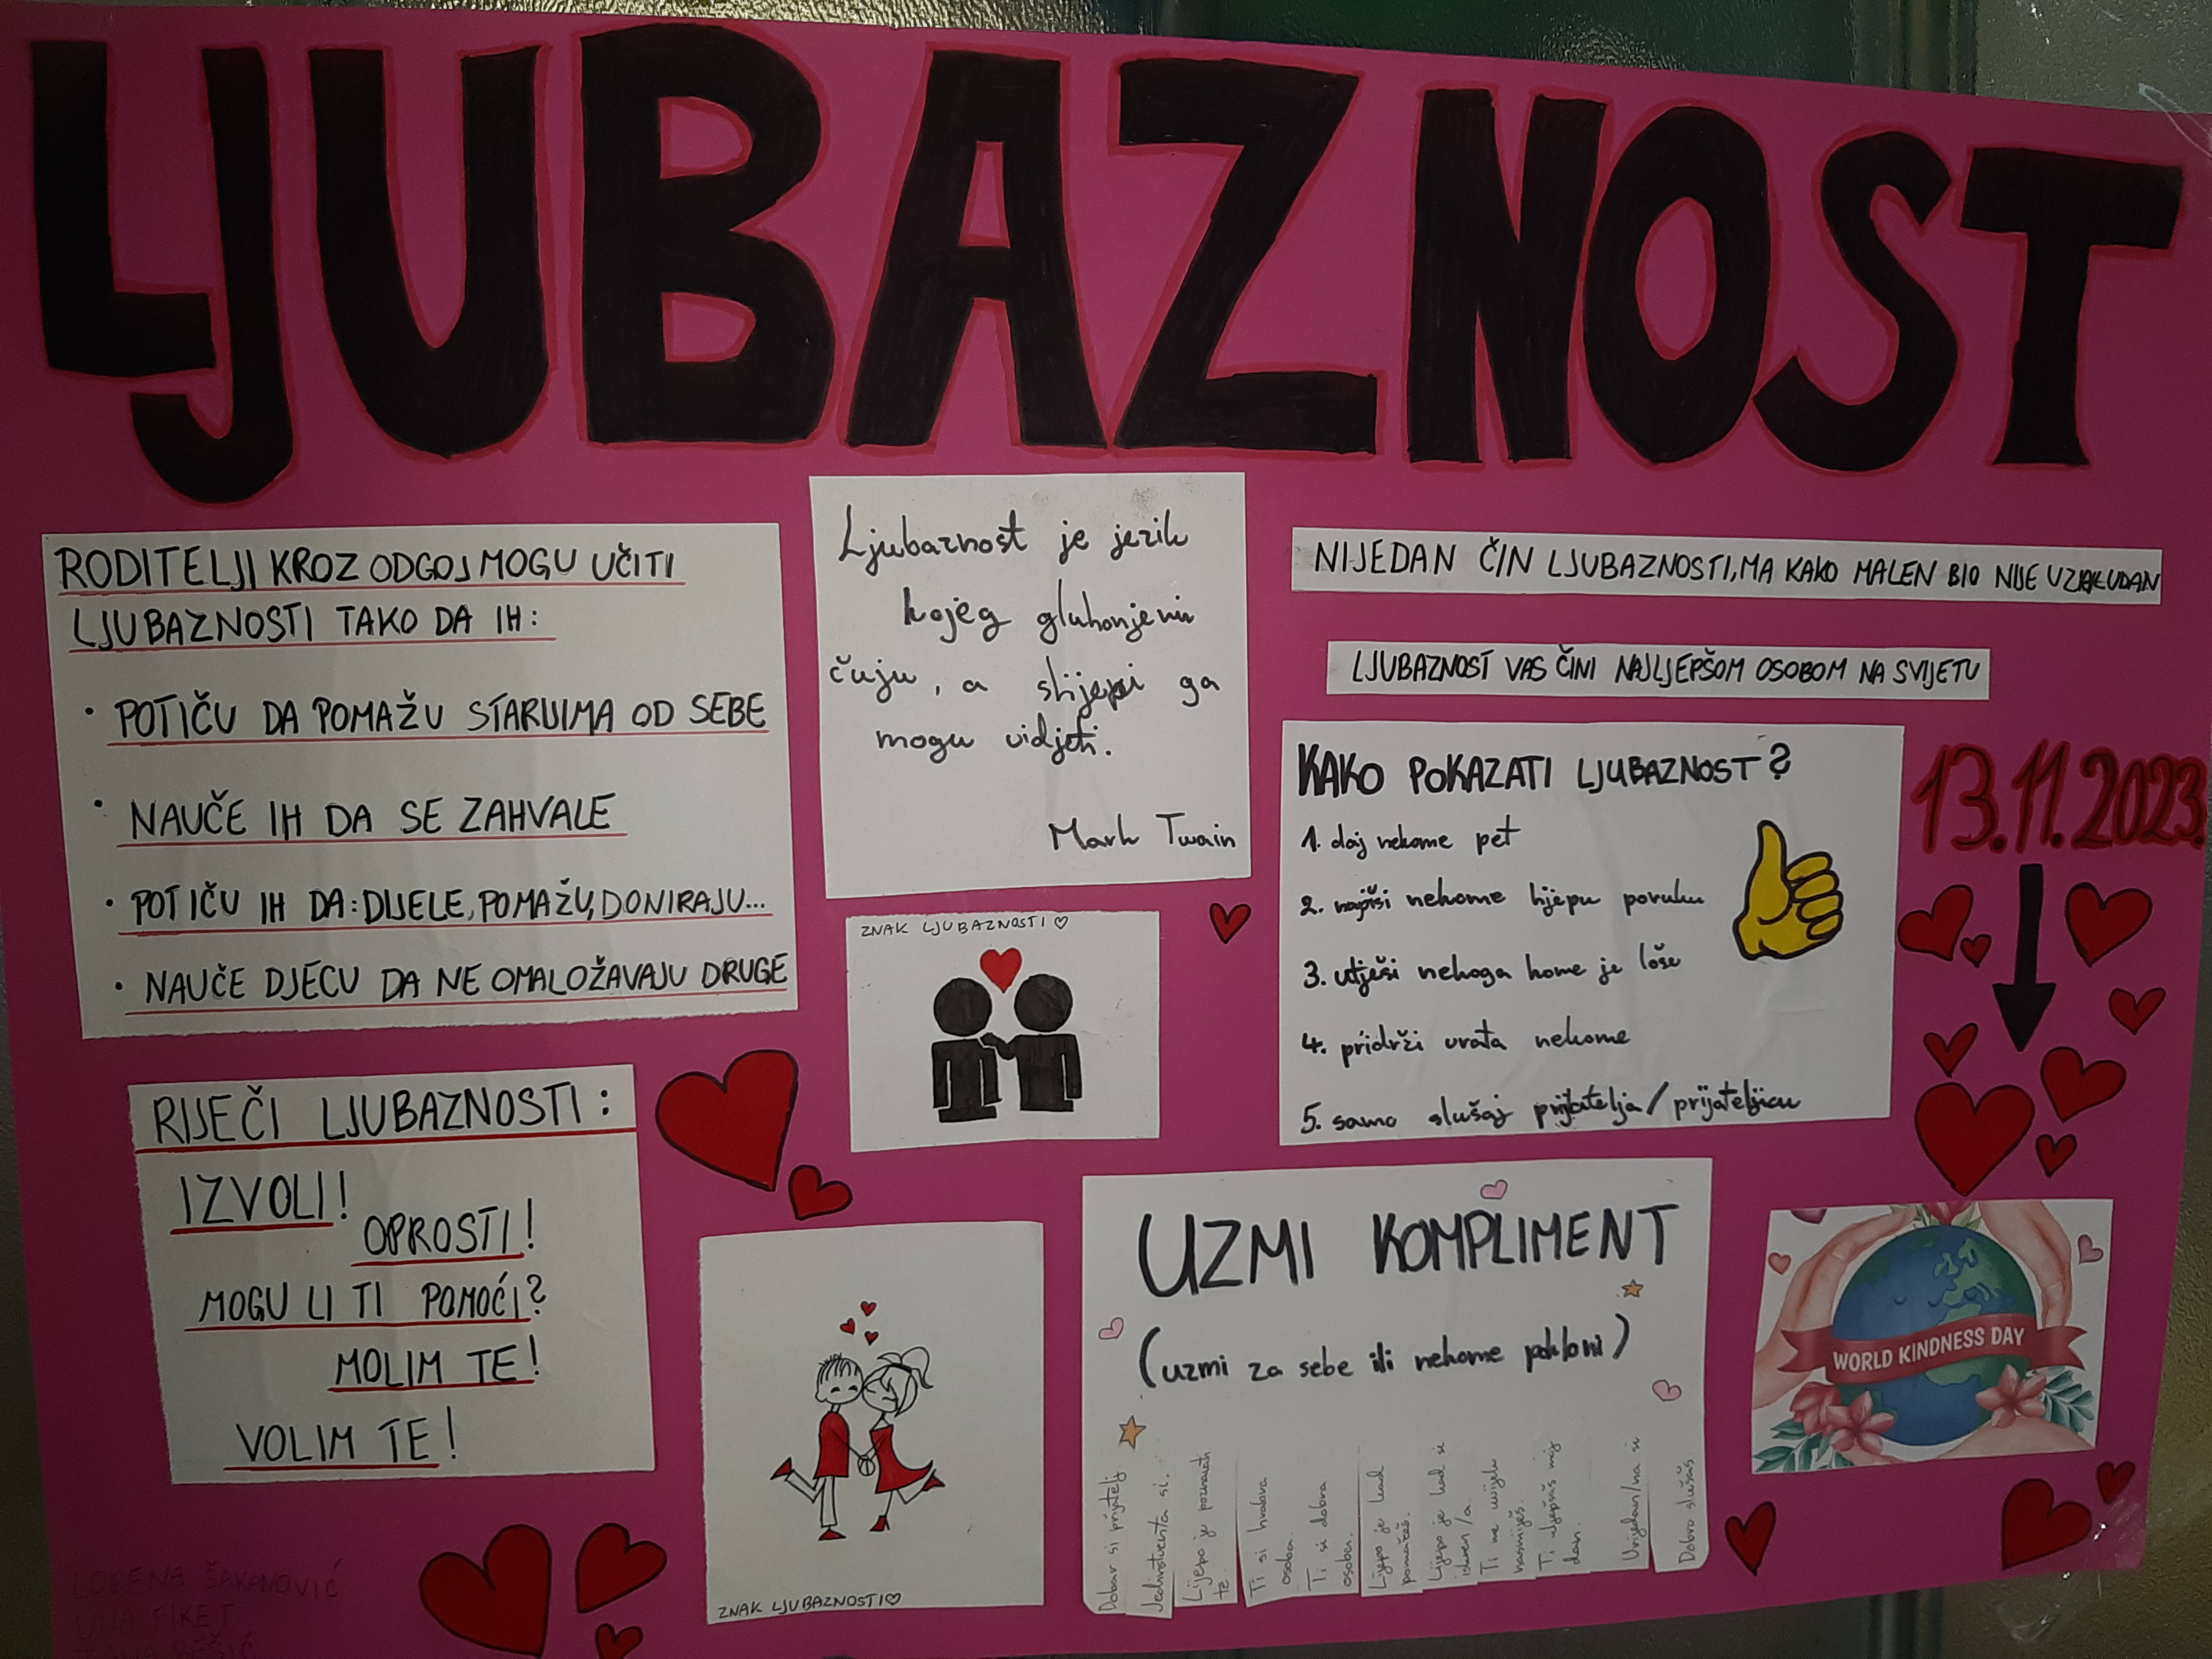 LJUBAZNOST
RODITELJI KROZ ODGOJ MOGU UČITI
LJUBAZNOSTI TAKO DA IH:
• POTIČU DA POMAŽU STARIJIMA OD SEBE
• NAUČE IH DA SE ZAHVALE
• POTIČU IH DA: DIJELE, POMAŽU, DONIRAJU...
• NAUČE DJECU DA NE OMALOŽAVAJU DRUGE
RIJEČI LJUBAZNOSTI:
IZVOLI!
OPROSTI!
MOGU LI TI POMOĆI?
MOLIM TE!
VOLIM TE!
Ljubaznost je jezik
kojeg gluhonjemi
čuju, a slijepi ga
mogu vidjeti.
Mark Twain
ZNAK LJUBAZNOSTI ♡
ZNAK LJUBAZNOSTI ♡
NIJEDAN ČIN LJUBAZNOSTI, MA KAKO MALEN BIO NIJE UZALUDAN
LJUBAZNOST VAS ČINI NAJLJEPŠOM OSOBOM NA SVIJETU
KAKO POKAZATI LJUBAZNOST?
1. daj nekome pet
2. napiši nekome lijepu poruku
3. utješi nekoga kome je loše
4. pridrži vrata nekome
5. samo slušaj prijatelja/prijateljicu
13.11.2023.
UZMI KOMPLIMENT
(uzmi za sebe ili nekome pokloni)
Dobar si prijatelj
Jedinstvena si.
Lijepo je poznavati
te.
Ti si hrabra
osoba.
Ti si dobra
osoba.
Lijepo je kad
pomažeš.
Lijepo je kad si
iskren/a.
Ti me uvijek
nasmiješ.
Ti uljepšaš moj
dan.
Vrijedan/na si
Dobro slušaš.
WORLD KINDNESS DAY
LORENA ŠAKANOVIĆ
FIKET
BEŠIĆ